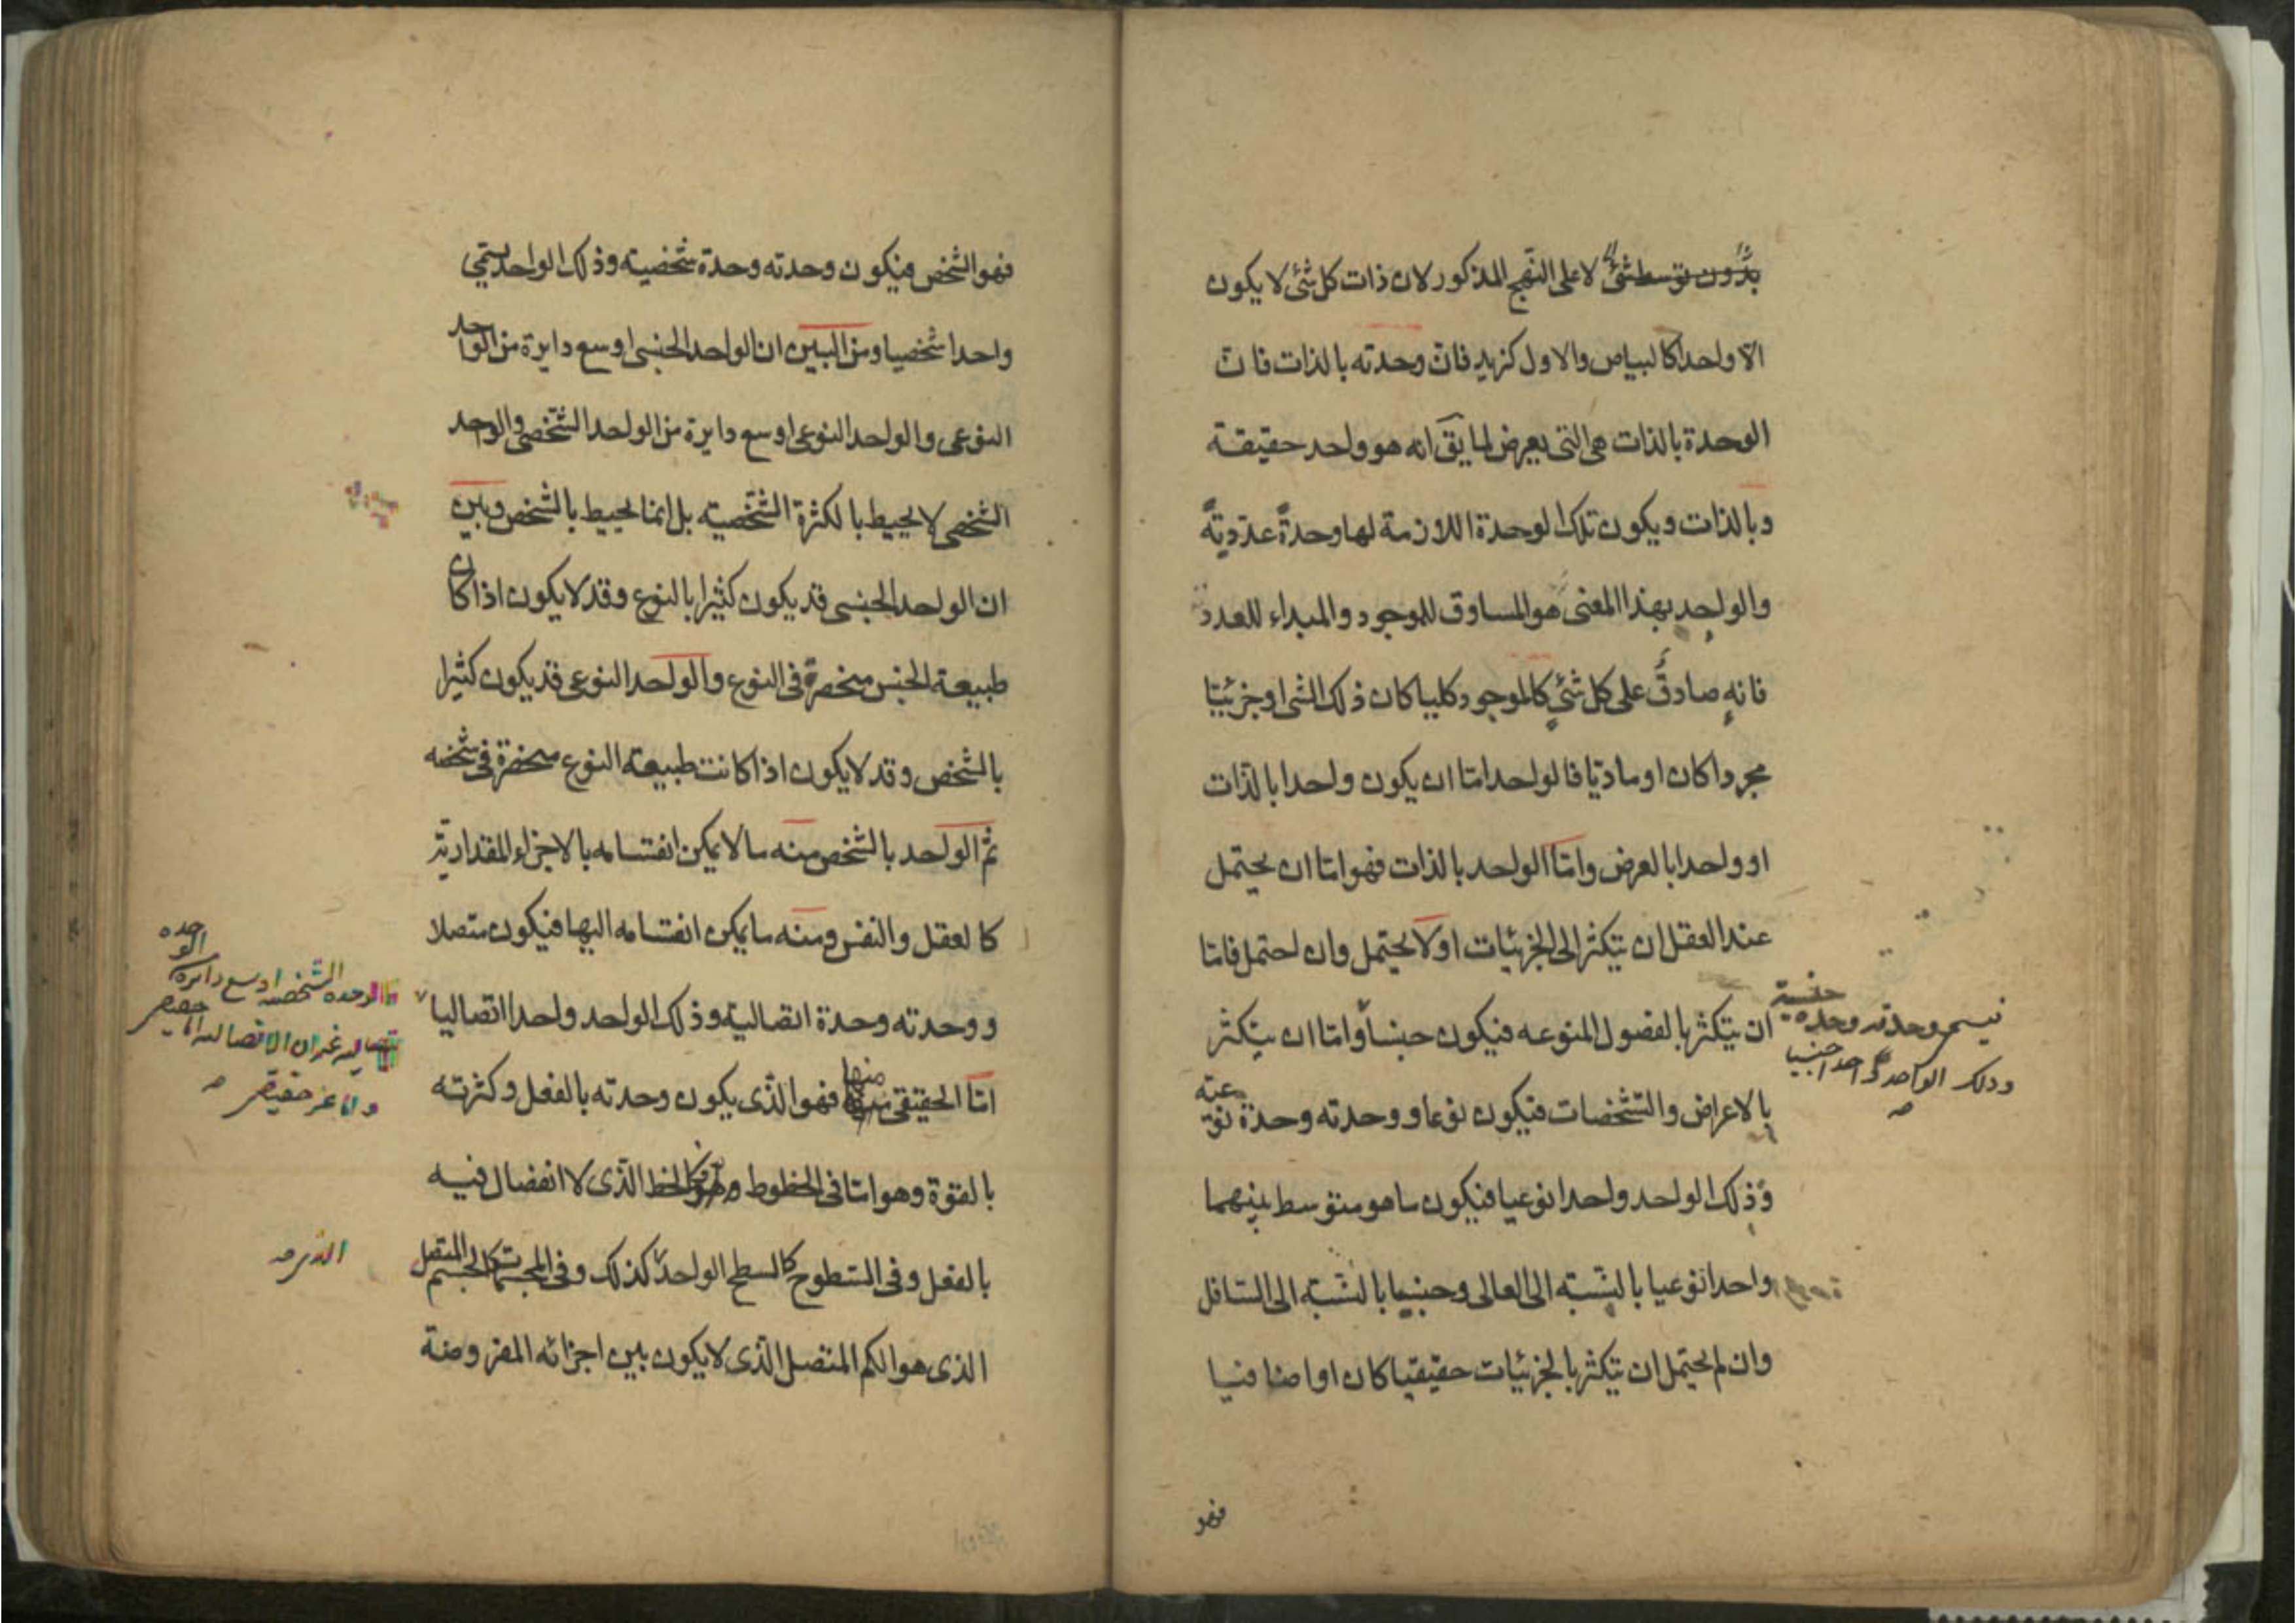 بدون توسط شئ لا على النهج المذكور لان ذات كل شئ لا يكون
الا واحدا كالبياض والاول كزيد فان وحدته بالذات فان
الوحدة بالذات هى التى يعرض لما يق انه هو واحد حقيقة
وبالذات ويكون تلك الوحدة اللازمة لها وحدةً عدديةً
والواحد بهذا المعنى هو المساوق للموجود والمبداء للعدد
فانه صادق على كل شئ كالموجود كليا كان ذلك الشى او جزئيا
مجردا كان او ماديا فالواحد اما ان يكون واحدا بالذات
او واحدا بالعرض واما الواحد بالذات فهو اما ان يحتمل
عند العقل ان يتكثر الى الجزئيات او لا يحتمل وان احتمل فاما
ان يتكثر بالفصول المنوعه فيكون جنسا واما ان يتكثر
فيسمى وحدته وحده جنسية
وذلك الواحد واحدا جنسيا
بالاعراض والتشخصات فيكون نوعا ووحدته وحدة نوعية
وذلك الواحد واحدا نوعيا فيكون ما هو متوسط بينهما
واحدا نوعيا بالنسبته الى العالى وجنسيا بالنسبة الى السافل
وان لم يحتمل ان يتكثر بالجزئيات حقيقيا كان او اضافيا
فهو
فهو الشخص فيكون وحدته وحدة شخصيته وذلك الواحد يسمى
واحدا شخصيا ومن البين ان الواحد الجنسى اوسع دايرة من الواحد
النوعى والواحد النوعى اوسع دايرة من الواحد الشخصى والواحد
الشخصى لا يحيط بالكثرة الشخصيته بل انما يحيط بالشخص وبين
ان الواحد الجنسى قد يكون كثيرا بالنوع وقد لا يكون اذا كان
طبيعة الجنس منحصرة فى النوع والواحد النوعى قد يكون كثيرا
بالشخص وقد لا يكون اذا كانت طبيعة النوع منحصرة فى شخصه
ثم الواحد بالشخص منه ما لا يمكن انقسامه بالاجزاء المقدارية
كالعقل والنفس ومنه ما يمكن انقسامه اليها فيكون متصلا
ووحدته وحدة اتصالية وذلك الواحد واحدا اتصاليا
الوحده الشخصيه اوسع دايرة الوحده
غير ان الاتصاليه اما حقيقى
واما غير حقيقى
اما الحقيقى منها فهو الذى يكون وحدته بالفعل وكثرته
بالقوة وهو اما فى الخطوط فهو كالخط الذى لا انفصال فيه
بالفعل وفى السطوح كالسطح الواحد كذلك وفى المجسمات كالجسم المتصل
الذى هو الكم المتصل الذى لا يكون بين اجزائه المفروضة